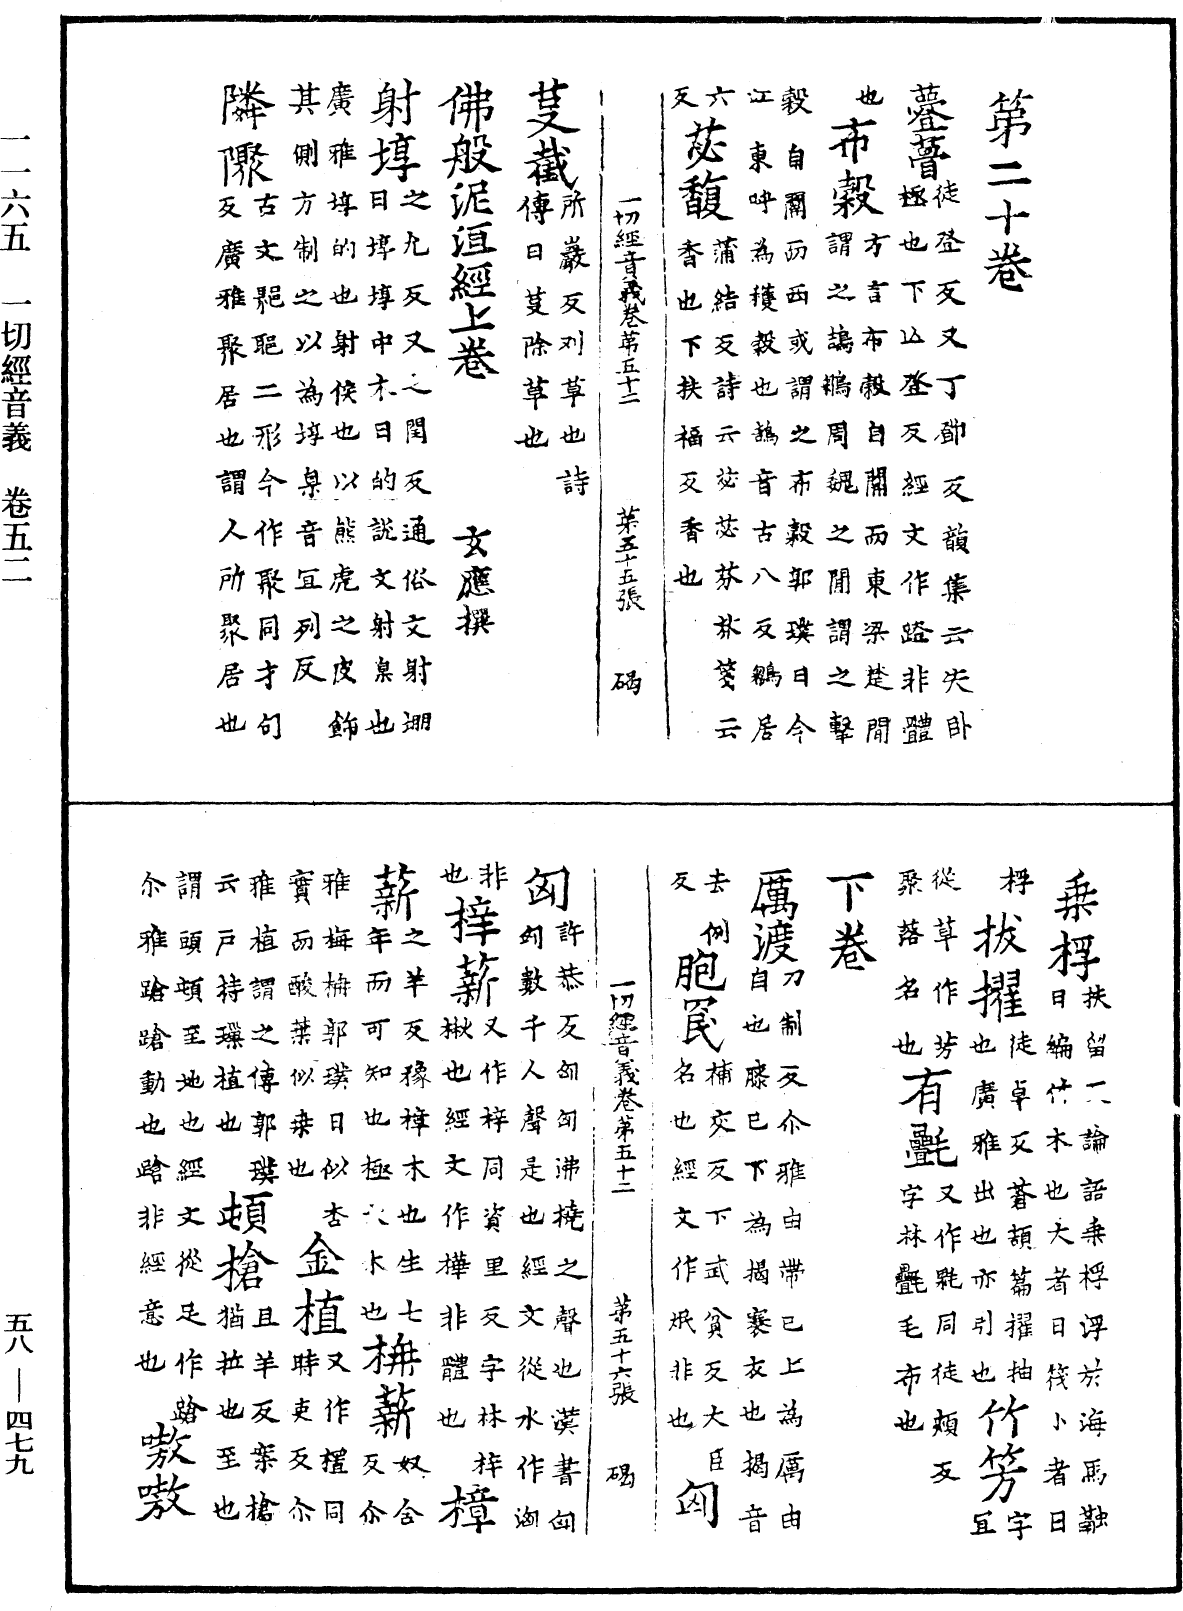 第二十卷
蔓瞢徒登反又丁鄧反韻集云失卧
極也下亾登反經文作蹬非體
也布穀方言布穀自關而東梁楚閒
謂之鴶鵴周魏之閒謂之擊
穀自關而西或謂之布穀郭璞曰今
江東呼為穫穀也鴶音古八反鵴居
六反苾馥蒲結反詩云苾苾芬芬箋云
香也下扶福反香也
一切經音義卷第五十二 第五十五張 碣
芟截所巖反刈草也詩
傳曰芟除草也
佛般泥洹經上卷 玄應撰
射埻之允反又之閏反通俗文射堋
曰埻埻中木曰的說文射臬也
廣雅埻的也射侯也以熊虎之皮飾
其側方制之以為埻臬音冝列反
隣𨼆古文𨞪𨛫二形今作聚同才句
反廣雅聚居也謂人所聚居也
乗桴扶留反論語乗桴浮於海馬融
曰編竹木也大者曰筏小者曰
桴拔擢徒卓反蒼頡篇擢抽
也廣雅出也亦引也竹笐字冝
從草作芳有㲲又作㲲同徒頰反
聚落名也字林㲲毛布也
下卷
厲渡力制反尒雅由帶已上為厲由
自也膝已下為揭褰衣也揭音
去例反胞罠補交反下武貧反大臣
名也經文作㟭非也
一切經音義卷第五十二 第五十六張 碣
匈匈許恭反匈匈沸撓之聲也漢書匈
匈數千人聲是也經文從水作洶
非也梓薪又作榟同資里反字林梓
楸也經文作樺非體也
樟薪之羊反豫樟木也生七
年而可知也極大木也栴薪奴含反尒
雅梅栴郭璞曰似杏
實而酸葉似桒也金植又作㯰同
時吏反尒
雅植謂之傳郭璞
云戶持璅植也頓槍且羊反槍
猶拉也至也
謂頭頓至地也經文從足作蹌
尒雅蹌蹌動也蹌非經意也嗷嗷
一一六五 一切經音義 卷五二
五八—四七九